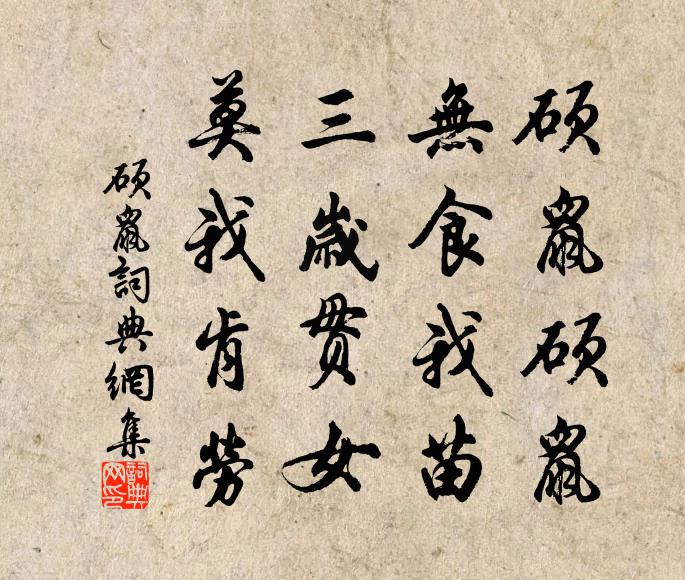 碩鼠碩鼠
無食我苗
三歲貫女
莫我肯勞
碩鼠詞典網集
詞典網印